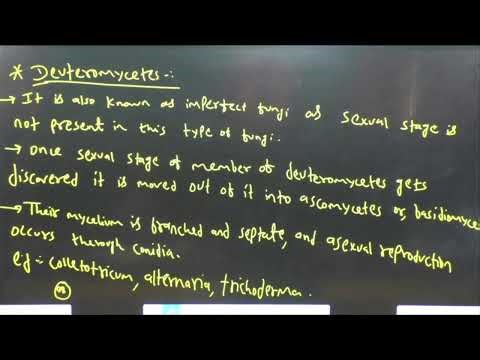 * Deuteromycetes :-
→ It is also known as imperfect fungi as sexual stage is
not present in this type of fungi.
→ Once sexual stage of member of deuteromycetes gets
discovered it is moved out of it into ascomycetes or, basidiomyce
→ Their mycelium is branched and septate, and asexual reproduction
occurs thorough conidia.
e.g :- colletotricum, alternaria, trichoderma.